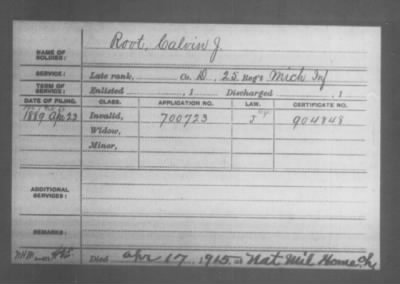 Root, Calvin J.
NAME OF SOLDIER:
SERVICE: Late rank, Co. D, 25 Reg't Mich Inf
TERM OF SERVICE: Enlisted , 1 Discharged , 1
DATE OF FILING. CLASS. APPLICATION NO. LAW. CERTIFICATE NO.
1889 Apr 23 Invalid, 700723 J 904848
Widow,
Minor,
ADDITIONAL SERVICES:
REMARKS:
Died Apr 17, 1915 at Nat Mil Home